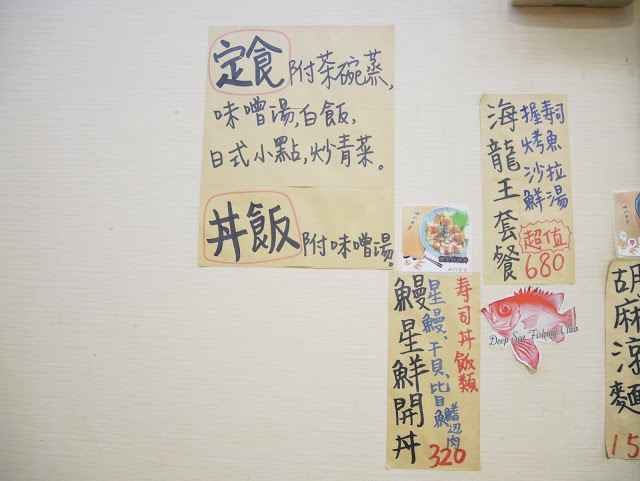 定食 附茶碗蒸,
味噌湯,白飯,
日式小點,炒青菜。
丼飯 附味噌湯。
海龍王套餐
握壽司
烤魚
沙拉
鮮湯
超值
680
Deep Sea Fishing Club
壽司丼飯類
星鰻、干貝、比目魚
鰭辺肉
鰻星鮮開丼
320
胡麻涼麵
15